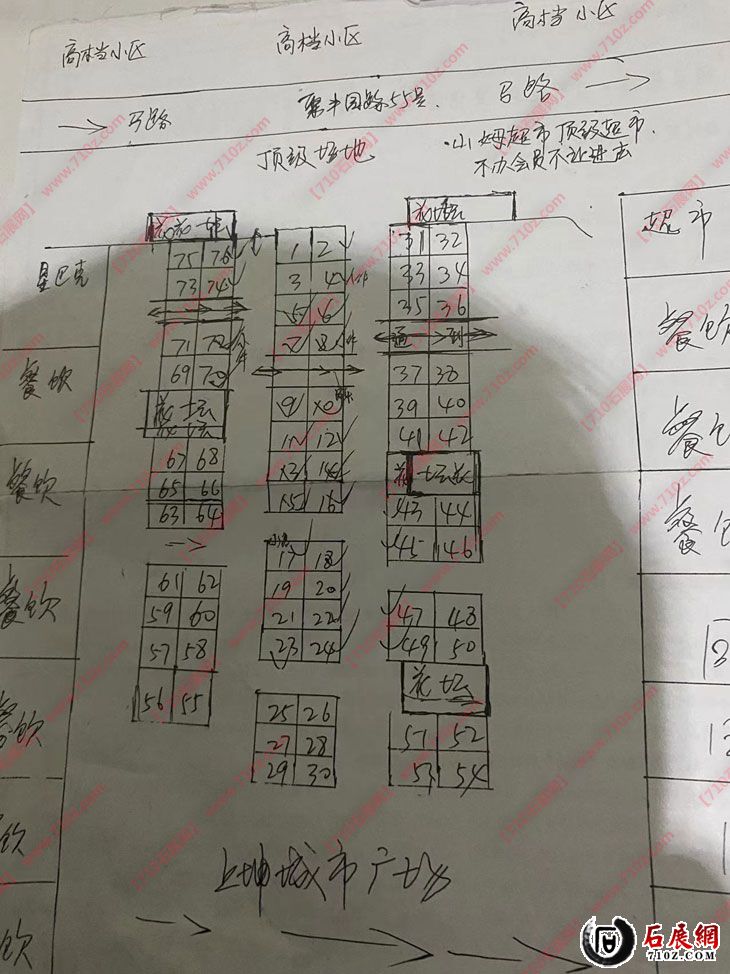 高档小区 高档小区 高档小区
马路 聚丰国际55号. 马路
顶级场地
·山姆超市顶级超市.
不办会员不让进去
花坛
花坛
星巴克
超市
75 76 1 2 31 32
73 74 3 4 33 34
5 6 35 36
71 72 7 8 通 到
69 70 37 38
餐饮
餐饮
花坛 9 10 39 40
11 12 41 42
67 68 13 14 花坛
餐饮
65 66 15 16 43 44
63 64 45 46
餐饮
17 18
61 62 19 20 47 48
59 60 21 22 49 50
餐饮
57 58 23 24 花坛
56 55 25 26
餐饮
27 28 51 52
29 30 53 54
上坤城市广场
石展網
710Z.COM
【710石展网】
www.710z.com